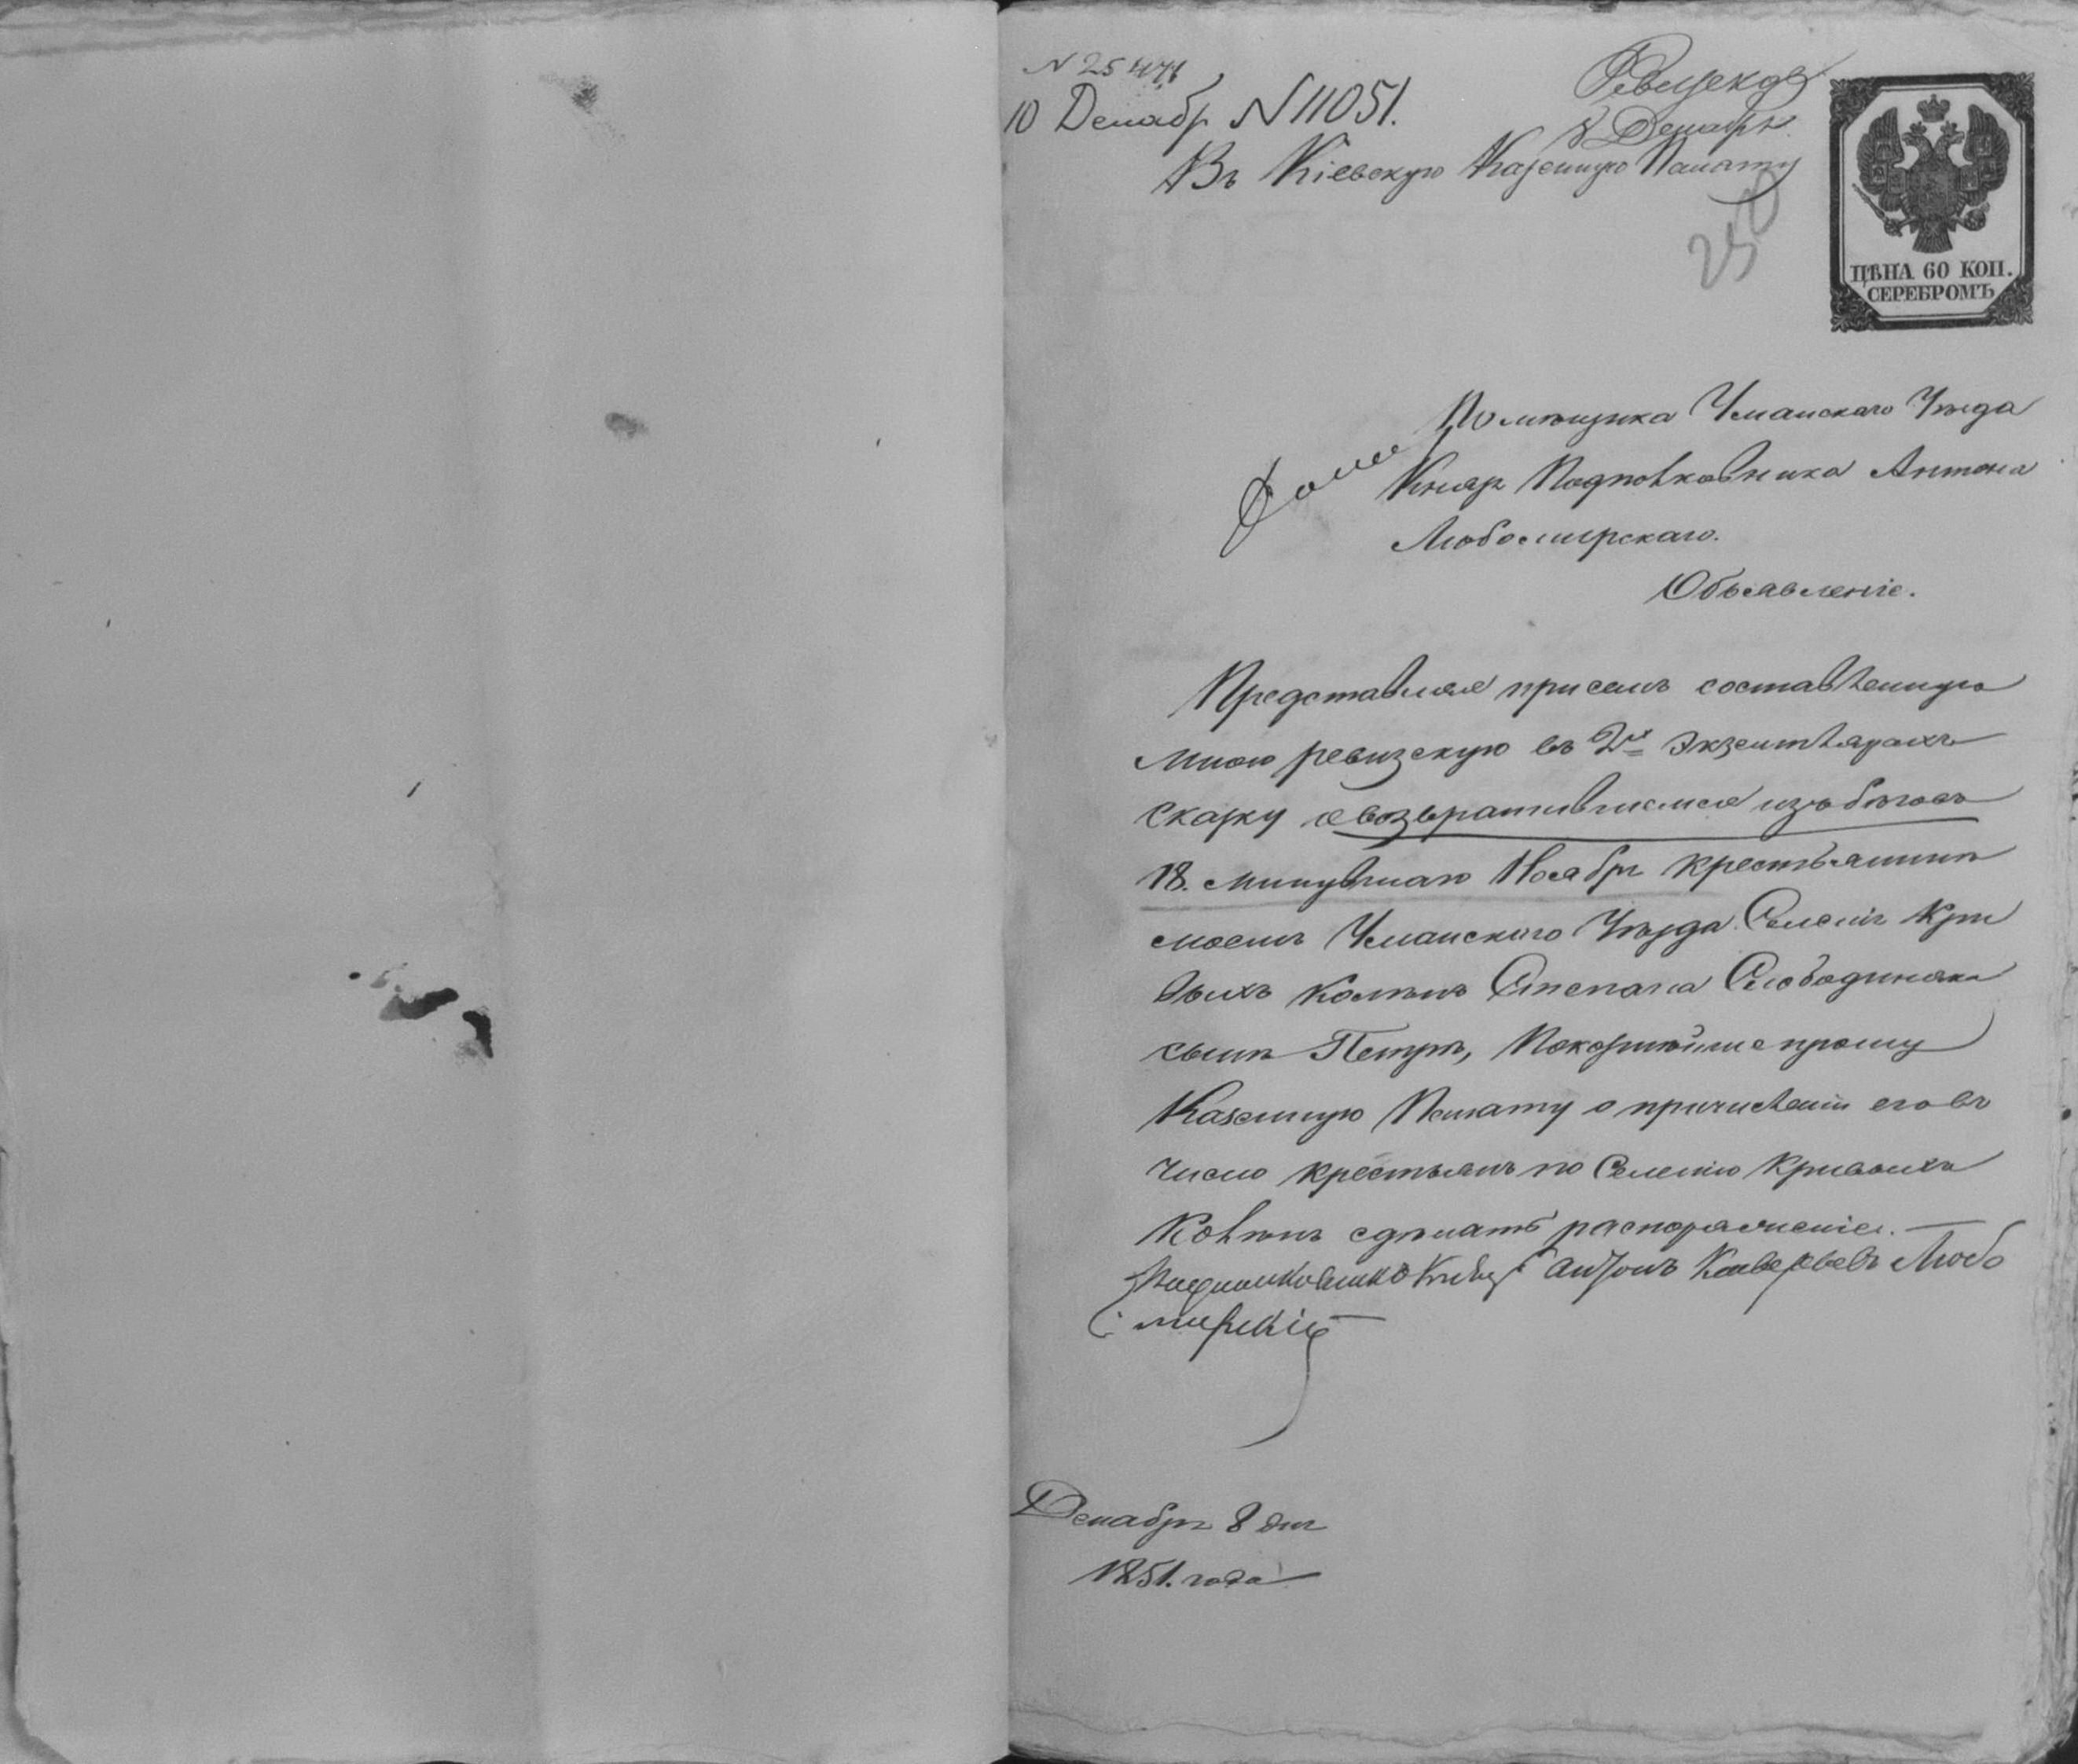 N 25471
10 Декабр N 11051.
Ревизская
8 Декабря
Въ Кіевскую Казенную Палату
250
ЦѢНА 60 КОП.
СЕРЕБРОМЪ
Помѣщика Уманскаго Уѣзда
Князя Подполковника Антона
Любомирскаго.
Объявленіе.
Представляя при семъ составленную
мною ревизскую въ 2хъ экземплярахъ
скаску о возвратившемся изъ бѣговъ
18. минувшаго Ноября крестьянинѣ
моемъ Уманскаго Уѣзда Селенія Кри
выхъ Колѣнъ Степана Слободиняка
сынѣ Петрѣ, Покорнѣйше прошу
Казенную Палату о причисленіи его въ
число крестьянъ по Селенію Кривыхъ
Колѣнъ сдѣлать распоряженіе.
Подполковникъ Князь Антонъ Ксаверьевъ Любо
мирскій
Декабря 8 дня
1851. года